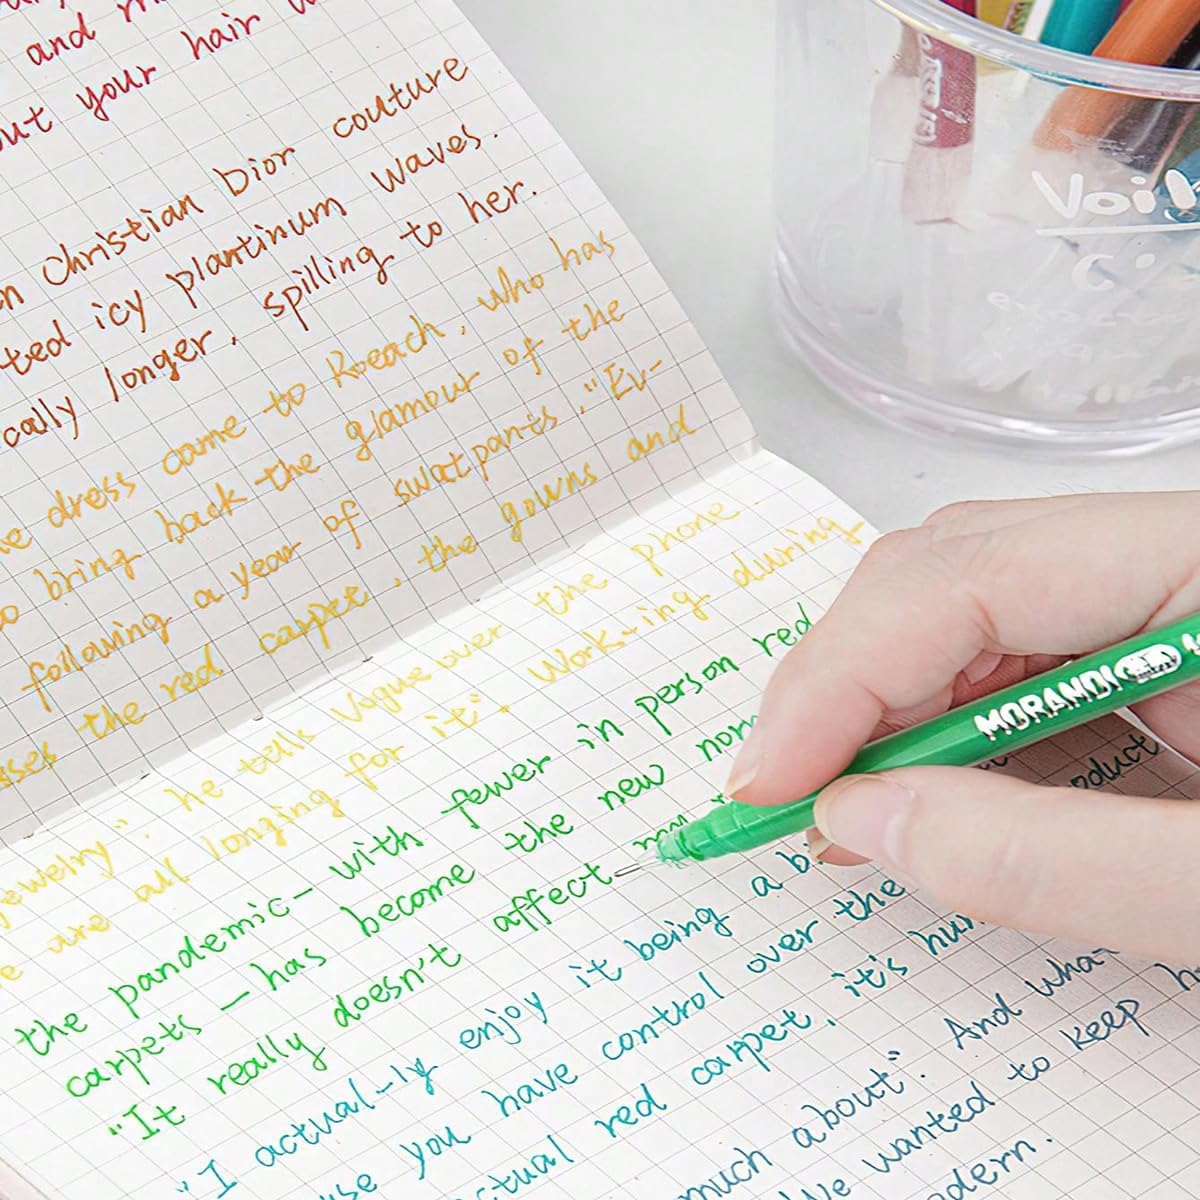 and
out your hair
Christian Dior couture
icy plantinum waves.
cally longer, spilling to her.
dress came to Roeach, who has
bring back the glamour of the
following a year of swatpants, "Ev-
the red carpet, the gowns and
jewelry". he tells Vogue over the phone
are all longing for it". Work-ing during
the pandemic- with fewer in person red
carpets - has become the new
"It really doesn't affect
"I actual-ly enjoy it being a
you have control over the
red carpet, it's
much about". And what
We wanted to keep
MORANDI